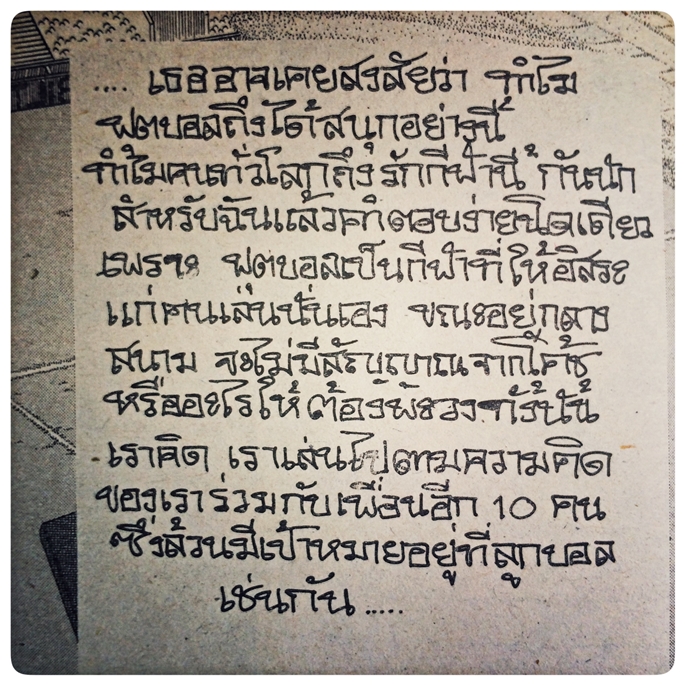 .... เธออาจเคยสงสัยว่า ทำไม
ฟุตบอลถึงได้สนุกอย่างนี้
ทำไมคนทั่วโลกถึงรักกีฬานี้กันนัก
สำหรับฉันแล้วคำตอบง่ายนิดเดียว
เพราะ ฟุตบอลเป็นกีฬาที่ให้อิสระ
แก่คนเล่นนั่นเอง ขณะอยู่กลาง
สนาม จะไม่มีสัญญาณจากโค้ช
หรืออะไรให้ต้องพะวงทั้งนั้น
เราคิด เราเล่นไปตามความคิด
ของเราร่วมกับเพื่อนอีก 10 คน
ซึ่งล้วนมีเป้าหมายอยู่ที่ลูกบอล
เช่นกัน .....